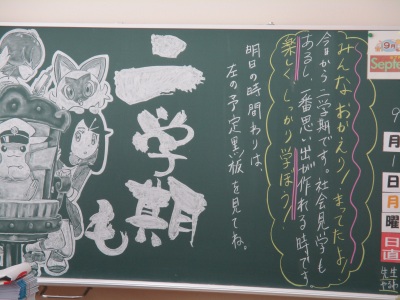 みんなおかえり！まってたよ！
今日から二学期です。社会見学も
あるし、一番思い出が作れる時です。
楽しく、しっかり学ぼう！
明日の時間わりは、
左の予定黒板を見てね。
二学期も
9月
Septe
9
月
1
日
月
曜
日直
先生